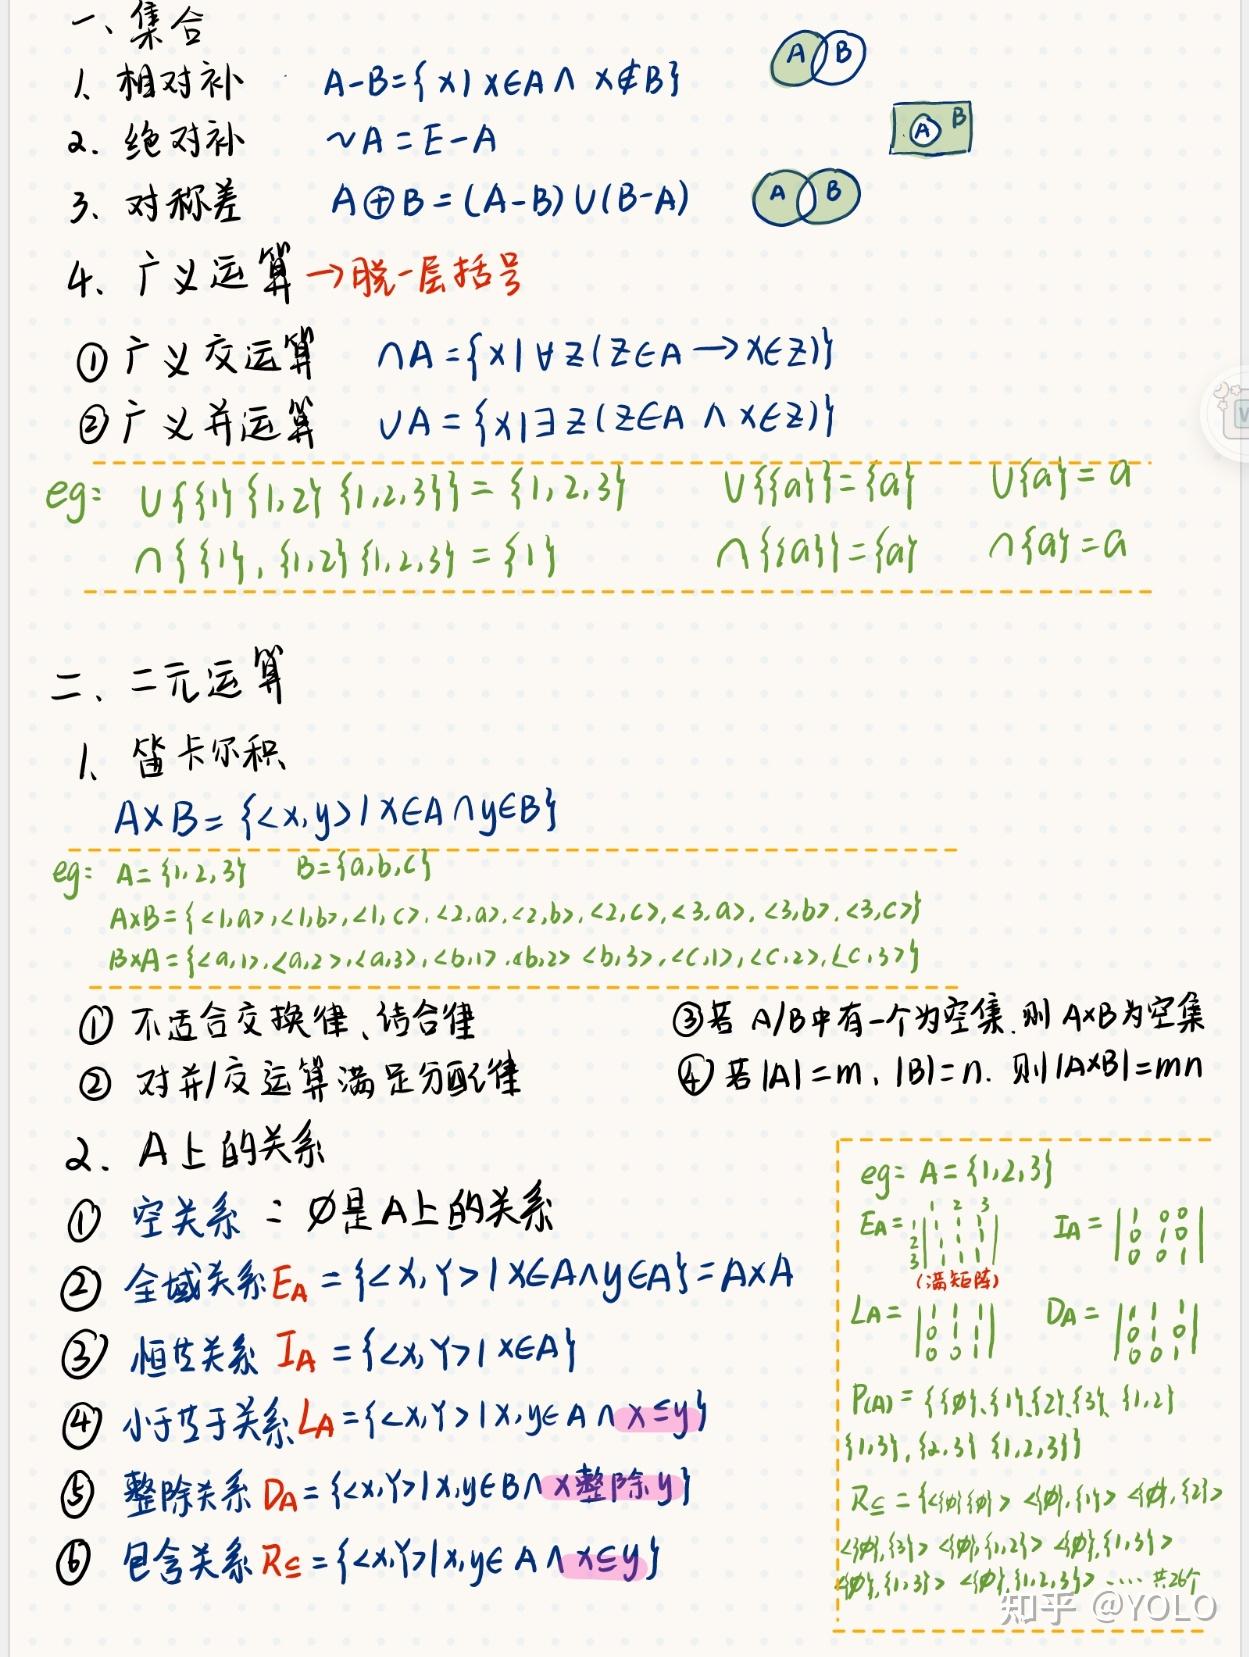 一、集合
1、相对补 A-B={x|x∈A∧x∉B} A B
2. 绝对补 ~A=E-A A B
3、对称差 A⊕B=(A-B)∪(B-A) A B
4、广义运算→脱一层括号
① 广义交运算 ∩A={x|∀z(z∈A→x∈z)}
② 广义并运算 ∪A={x|∃z(z∈A∧x∈z)}
eg: ∪{{1}{1,2}{1,2,3}}={1,2,3} ∪{{a}}={a} ∪{a}=a
∩{{1},{1,2}{1,2,3}={1} ∩{{a}}={a} ∩{a}=a
二、二元运算
1、笛卡尔积
A×B={<x,y>|x∈A∩y∈B}
eg: A={1,2,3} B={a,b,c}
A×B={<1,a>,<1,b>,<1,c>,<2,a>,<2,b>,<2,c>,<3,a>,<3,b>,<3,c>}
B×A={<a,1>,<a,2>,<a,3>,<b,1>,<b,2><b,3>,<c,1>,<c,2>,<c,3>}
① 不适合交换律、结合律
② 对并/交运算满足分配律
③若 A/B中有一个为空集,则 A×B为空集
④若|A|=m、|B|=n. 则|A×B|=mn
2. A上的关系
① 空关系: ∅是A上的关系
② 全域关系EA={<x,Y>|x∈A∧y∈A}=A×A
③ 恒等关系 IA={<x,Y>|x∈A}
④ 小于等于关系LA={<x,Y>|x,y∈A∧x≤y}
⑤ 整除关系 DA={<x,Y>|x,y∈B∩x整除y}
⑥ 包含关系R⊆={<x,Y>|x,y∈A∧x⊆y}
eg: A={1,2,3}
1 2 3
EA= 1|1 1 1| IA= |1 0 0|
2|1 1 1| |0 1 0|
3|1 1 1| |0 0 1|
(满矩阵)
LA= |1 1 1| DA= |1 1 1|
|0 1 1| |0 1 0|
|0 0 1| |0 0 1|
P(A)={{∅},{1},{2},{3},{1,2}
{1,3},{2,3}{1,2,3}}
R⊆={<{∅}{∅}><{∅},{1}><{∅},{2}>
<{∅},{3}><{∅},{1,2}><{∅},{1,3}>
<{∅},{1,3}><{∅},{1,2,3}>……共26个
知乎 @YOLO